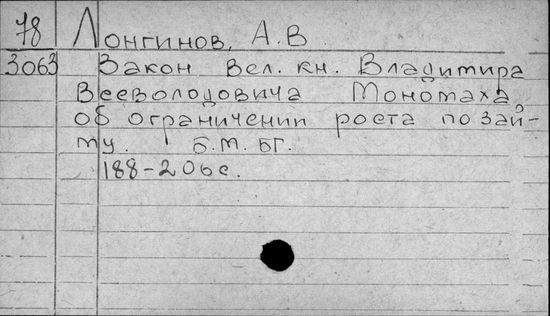 78 Лонгинов, А.В
3063 Закон Вел. кн. Владимира
Всеволодовича Мономаха
об ограничении роста по зай-
му. Б.М. БГ.
188-206с.